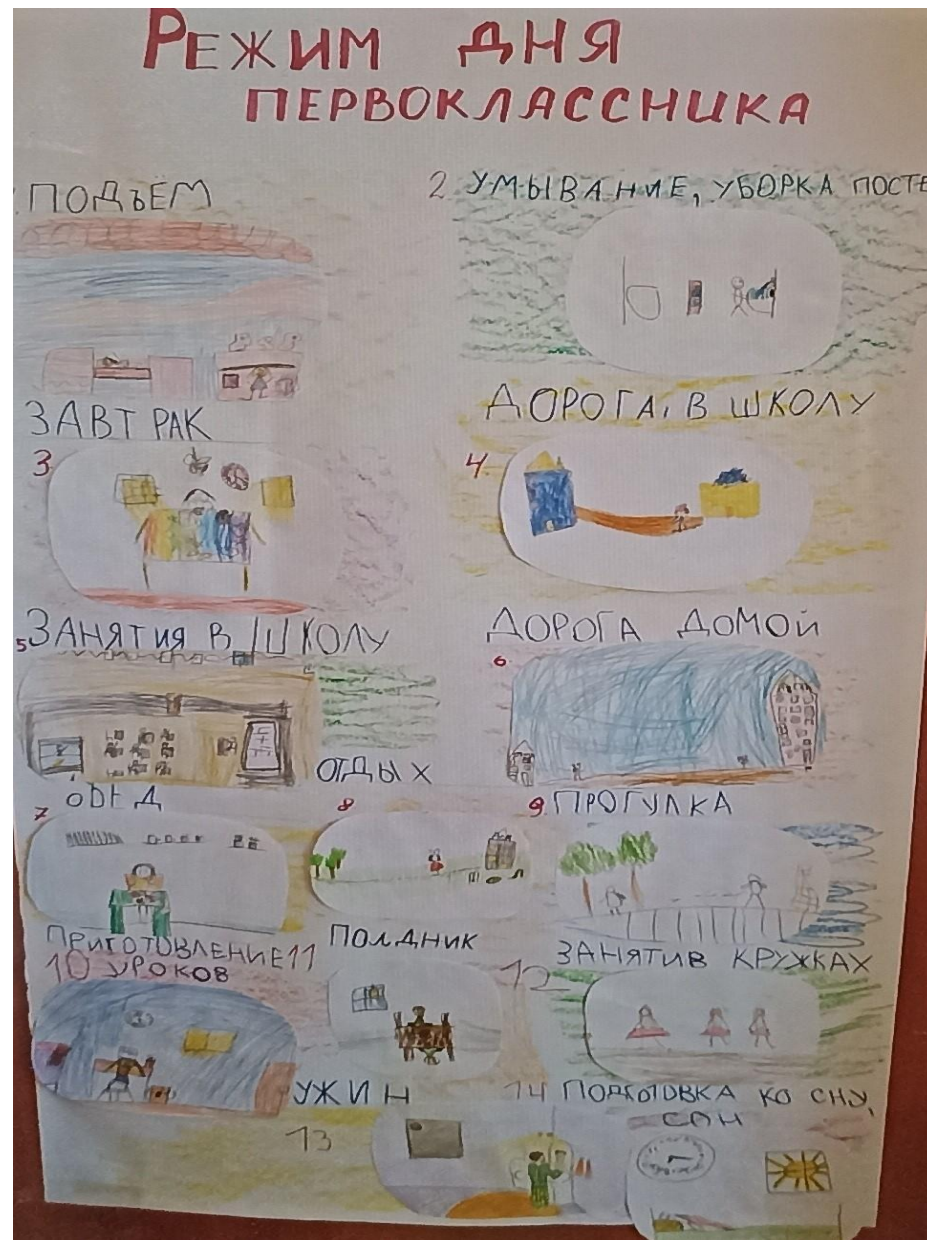 РЕЖИМ ДНЯ
ПЕРВОКЛАССНИКА
ПОДЪЕМ
2. УМЫВАНИЕ, УБОРКА ПОСТЕ
ЗАВТРАК
3.
ДОРОГА, В ШКОЛУ
4.
5 ЗАНЯТИЯ В ШКОЛУ
ДОРОГА ДОМОЙ
6
7 ОБЕД
8 ОТДЫХ
9. ПРОГУЛКА
ПРИГОТОВЛЕНИЕ
10 УРОКОВ
11 ПОЛДНИК
12 ЗАНЯТИВ КРУЖКАХ
УЖИН
13
14 ПОДГОТОВКА КО СНУ,
СОН